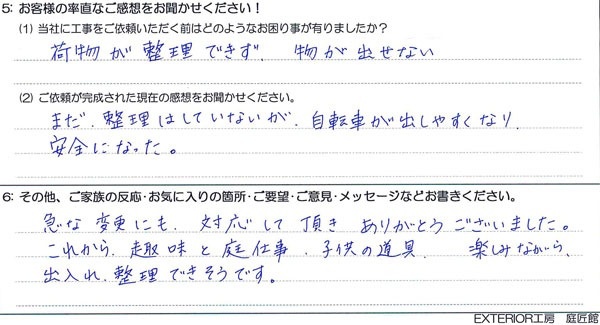 5: お客様の率直なご感想をお聞かせください！
(1) 当社に工事をご依頼いただく前はどのようなお困り事が有りましたか？
荷物が整理できず、物が出せない
(2) ご依頼が完成された現在の感想をお聞かせください。
まだ、整理はしていないが、自転車が出しやすくなり、
安全になった。
6: その他、ご家族の反応･お気に入りの箇所･ご要望･ご意見･メッセージなどお書きください。
急な変更にも、対応して頂きありがとうございました。
これから、趣味と庭仕事、子供の道具、楽しみながら、
出入れ、整理できそうです。
EXTERIOR工房 庭匠館